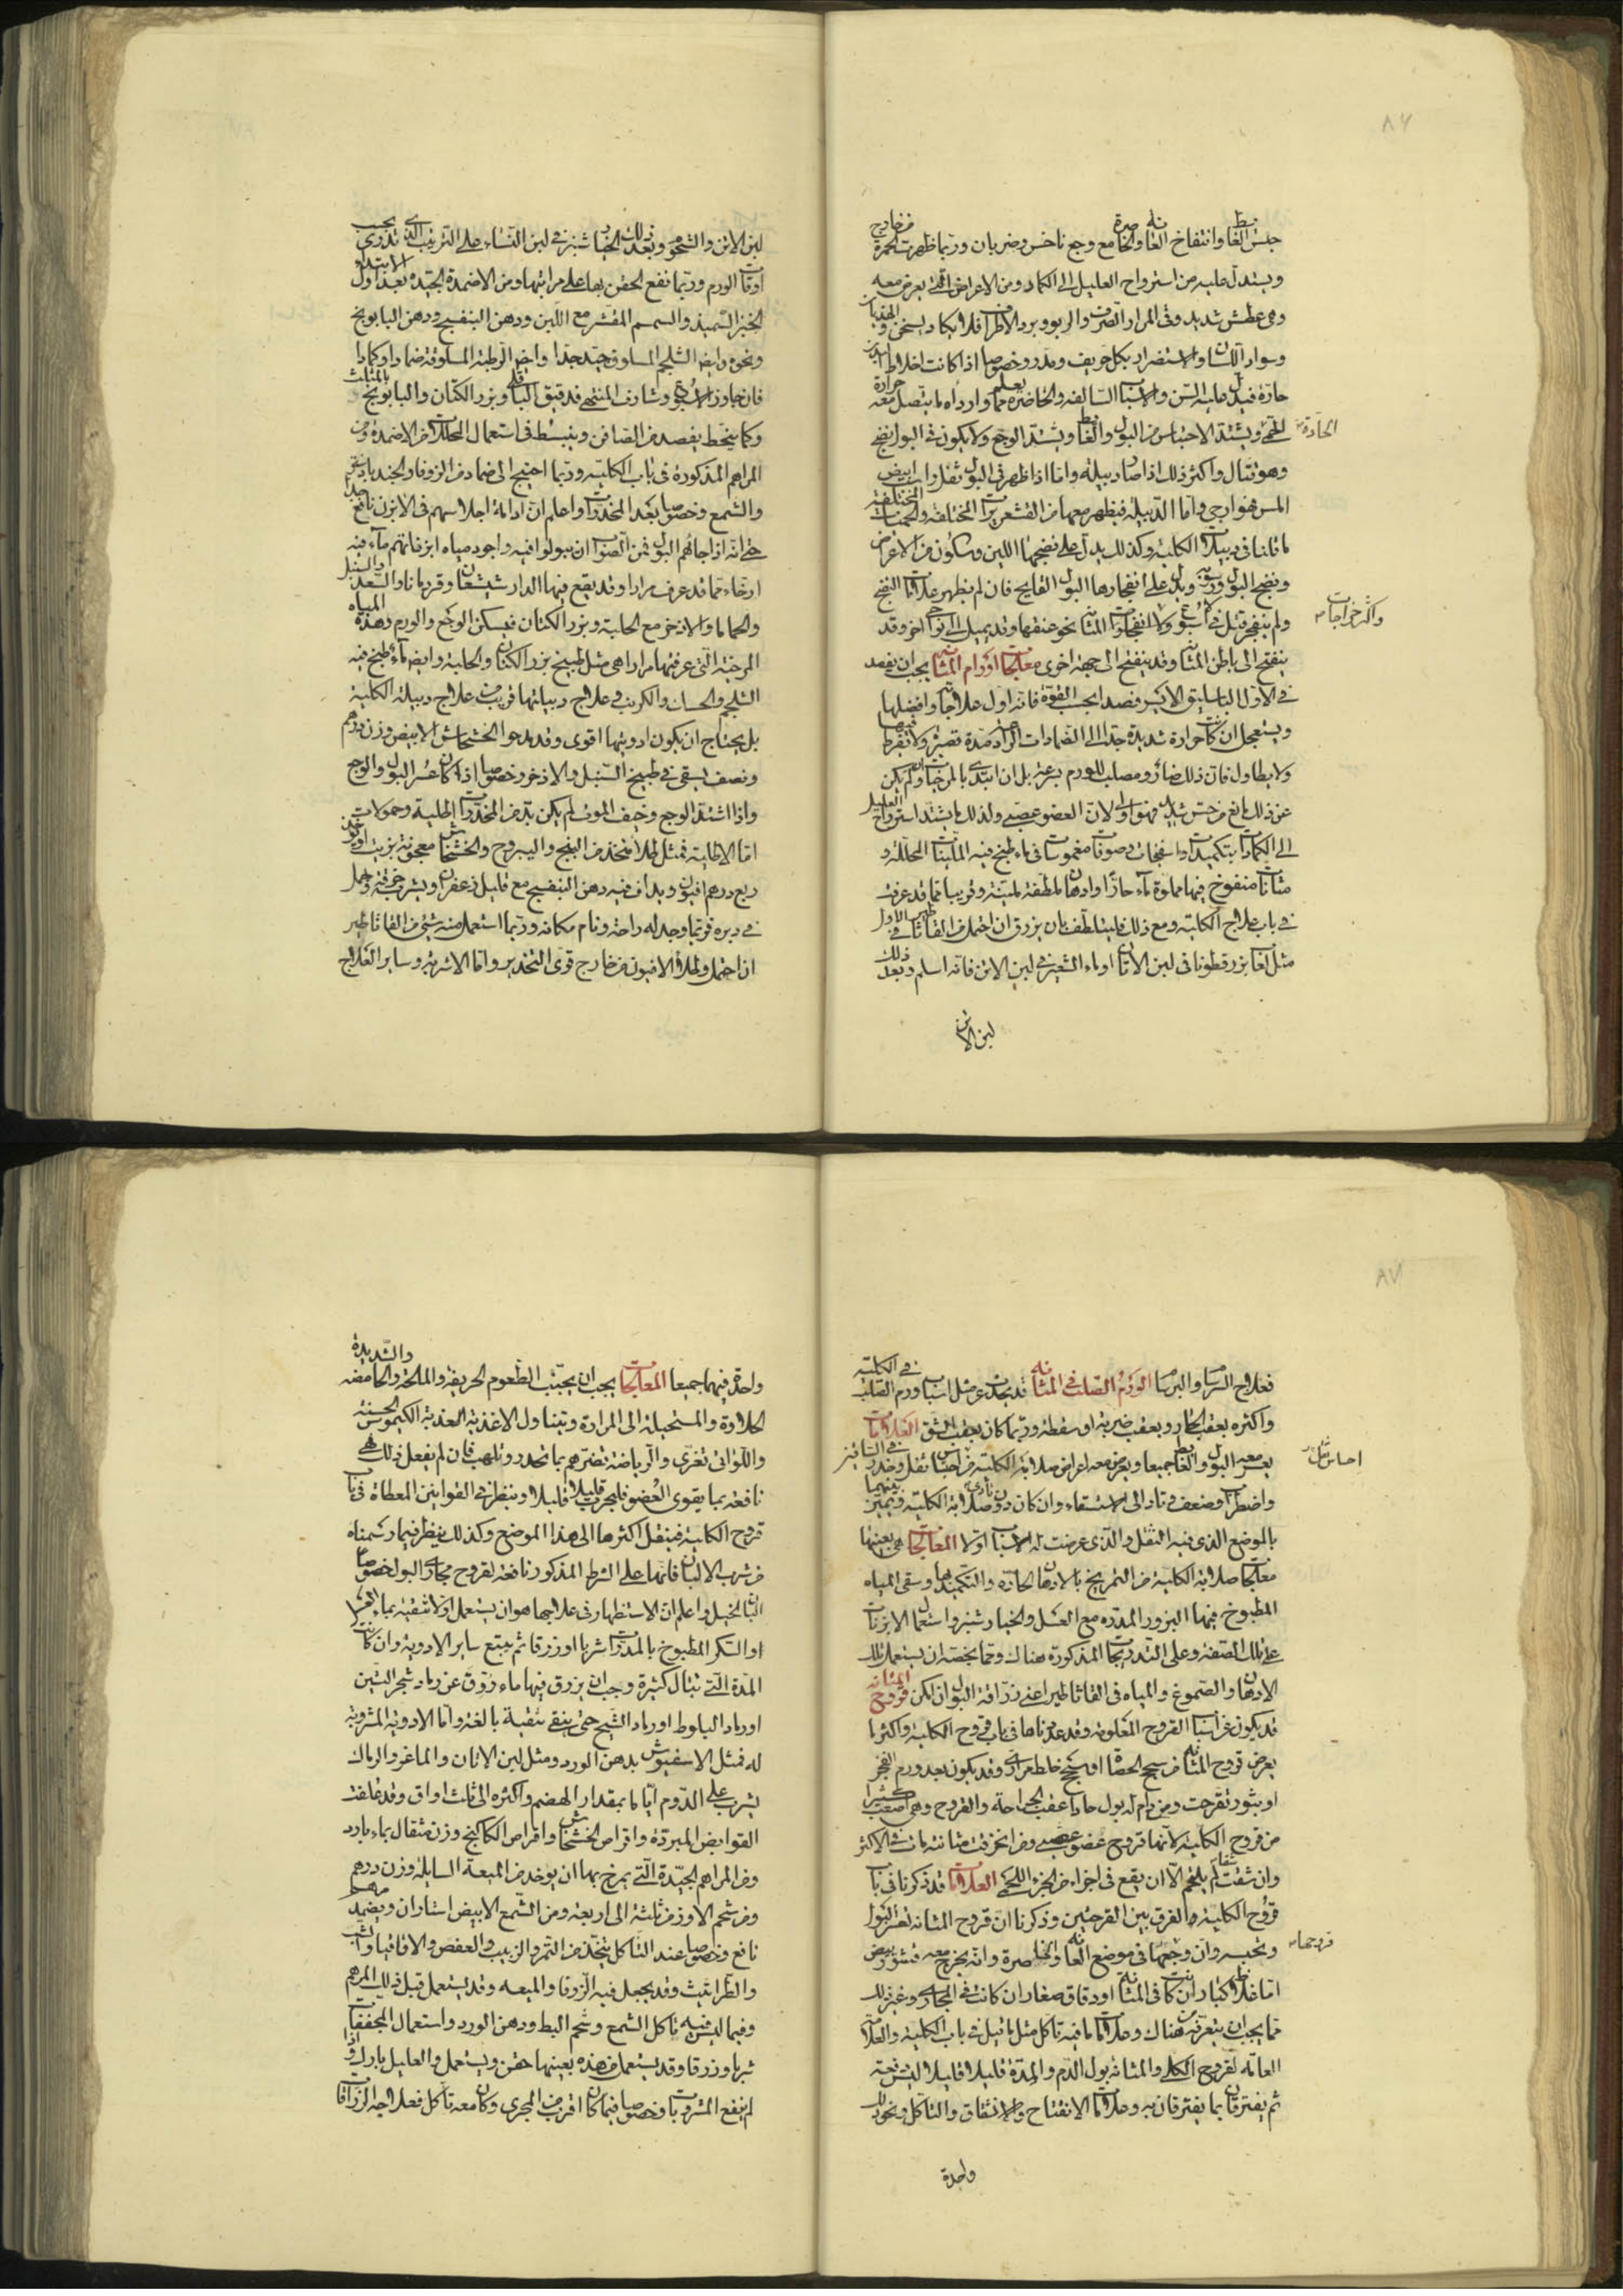 ٨٦
حبس الغائط وانتفاخ العانة والخاصرة مع وجع ناخس وضربان وربما ظهرت الحمرة من خارج
ويستدل عليه من استرواح العليل الى الكماد ومن الاعراض التي يعرض معه
وهي عطش شديد وقئ المرار الصرف والربو وبرد الاطراف فلا يكاد يسخن والهذيان
وسواد اللسان والاستضرار بكل حريف ومدر وخصوصا اذا كانت اخلاط البدن
حارة فيدل عليه السن والاسباب السالفة والحاضرة
الحمى ويشتد الاحتباس من البول والغائط ويشتد الوجع ولا يكون في البول نضج
الحادة
وهو قتال واكثر ذلك اذا صار دبيلة واما اذا ظهر في البول ثفل راسب ابيض
املس فهو ارجى واما الدبيلة فيظهر معها من القشعريرات المختلفة والحميات المختلفة
ما قلنا في دبيلات الكلية وكذلك يدل على نضجها اللين وسكون من الاعراض
ونضج البول ورسوبه ويدل على انفجارها البول القايح فان لم يظهر علامات النضج
ولم ينفجر قتل في اسبوع
واكثر خراجات
ينفتح الى باطن المثانة وقد ينفتح الى جهة اخرى معالجات اورام المثانة يجب ان يفصد
في الاول الباسليق الايسر فصدا بحسب القوة فانه اول علاجاته وافضلها
ويستعجل ان كانت حرارة شديدة جدا الى الضمادات الرادعة مدة قصيرة ولا تفرط فيها
ولا يطاول فان ذلك ضار ومصلب للورم
الى الكمادات بتكميدات واسفنجات وصوفات مغموسات في ماء طبخ فيه الملينات المحللة و
مثانات منفوخ فيها مملوة ماء حارا او ادهانا ملطفة ملينة وقريبا مما قد عرفت
في باب علاج الكلية ومع ذلك
مثل لعاب بزر قطونا في لبن الاتان او ماء الشعير في لبن الاتن فانه اسلم وبعد ذلك
لبن الاتن
لبن الاتن والشحوم وبعد ذلك الخيار شنبر في لبن النساء على الترتيب الذي تدري بحسب
اوقات الورم وربما نفع الحقن بها على مراتبها ومن الاضمدة الجيدة بعد اول الابتداء
الخبز السميذ والسمسم المقشر مع اللبن ودهن البنفسج ودهن البابونج
ونحوه وايضا الشلجم المسلوق جيد جدا وايضا الرطبة المسلوقة ضمادا وكمادا
فان جاوز الاسبوع وشارف المنتهى فدقيق الباقلا وبزر الكتان والبابونج بالمثلث
وكما ينحط يفصد من الصافن وينبسط في استعمال المحللات من الاضمدة ومن
المراهم المذكورة في باب الكلية وربما احتيج الى ضماد من الزوفا والجندبادستر
والشمع وخصوصا بعد المخدرات واعلم ان ادامة اجلاسهم في الابزن نافع جدا
حتى انه اذا جاءهم البول فمن الصواب ان يبولوا فيه واجود مياه ابزناتهم ماء فيه
ارخاء مما قد عرف مرارا وقد يقع فيها الدارشيشعان وقردمانا والسعد والسنبل
والحماما والاذخر مع الحلبة وبزر الكتان فيسكن الوجع والورم وهذه المياه
المرخية التي عرفتها مرارا هي مثل طبيخ بزر الكتان والحلبة وايضا ماء طبخ فيه
الشلجم والحسك والكرنب وعلاج دبيلتها قريب من علاج دبيلة الكلية
بل يحتاج ان يكون ادويتها اقوى وقد يدعو الخشخاش الابيض وزن درهم
ونصف يسقى في طبيخ السنبل والاذخر وخصوصا اذا كان عسر البول والوجع
واذا اشتد الوجع وخيف الموت لم يكن بد من المخدرات الطلية وحمولات
اما الاطلية فمثل طلاء متخذ من البنج واليبروح والخشخاش معجونة بزيت
ربع درهم افيون ويداف فيه دهن البنفسج مع قليل زعفران ويشرب خرقة ويحمل
في دبره فربما وجد له راحة ونام مكانه وربما استعمل منه شيء من القاثاطير
ان احتمل وطلاء الافيون من خارج قوى التخدير واما الاشربة وساير العلاج
٨٧
فعلاج السرسام والبرسام الورم الصلب في المثانة قد يحدث عن مثل اسباب ورم الصلب في الكلية
واكثره بعقب الحار وبعقب ضربة او سقطة وربما كان بعقب الشق العلامات
يعسر معه البول والغائط جميعا ويعرض معه اعراض صلابة الكلية من احتباس ثقل وخدر في الساقين
احساس ثقل
واضطراب وضعف
بالموضع الذي فيه الثقل والذي عرضت له الاسباب اولا المعالجات هي بعينها
معالجات صلابة الكلية من التمريخ بالادهان الحارة والتكميد بها وسقي المياه
المطبوخ فيها البزور المدرة مع العسل والخيار شنبر واستعمال الابزنات
على تلك الصفة وعلى التدريجات المذكورة هناك ومما يخصه ان يستعمل تلك
الادهان والصموغ والمياه في القاثاطير اعني زراقة البول ان امكن قروح المثانة
قد يكون عن اسباب القروح المعلومة وقد عددناها في باب قروح الكلية واكثر ما
يعرض قروح المثانة من سحج الحصاة او سحج خلط مراري وقد يكون بعد ورم انفجر
او بثور تقرحت ومن دام له بول حاد اعقب الجراحة والقروح وهي اصعب كثيرا
من قروح الكلية لانها قروح عضو عصبي ومن انخرقت مثانته مات في الاكثر
وان شقت لم يلتحم الا ان يقع في اجزاء من الجزء اللحمي العلامات قد ذكرنا في باب
قروح الكلية والفرق بين القرحتين وذكرنا ان قروح المثانة تعسر البول
وتحبسه وان وجعها في موضع العانة والخاصرة وانه يخرج معه قشور بيض
قروحها
اما غلاظ كبار ان كانت في المثانة او دقاق صغار ان كانت في المجاري وغير ذلك
مما يجب ان يتعرفه من هناك وعلامات ما فيه تاكل مثل ما قيل في باب الكلية والعلامة
العامة لقروح الكلى والمثانة بول الدم والمدة قليلا قليلا ليس دفعة
ثم يفترقان بما يفترقان به وعلامات الانفتاح والانشقاق والتاكل ونحو ذلك
واحدة
واحدة فيهما جميعا المعالجات يجب ان يجتنب الطعوم الحريفة والمالحة والحامضة والشديدة
الحلاوة والمستحيلة الى المرارة ويتناول الاغذية العذبة الكيموس الحسنة
واللواتي تغري والرياضة تضرهم بما تحدر وتلهب فان لم يفعل ذلك فهي
نافعة بما يقوي العضو فليجرب قليلا قليلا وينظر في القوانين المعطاة في باب
قروح الكلية فينقل اكثرها الى هذا الموضع وكذلك ينظر فيما رسمناه
من شرب الالبان فانها على الشرط المذكور نافعة لقروح مجاري البول خصوصا
البان الخيل واعلم ان الاستظهار في علاجها هو ان يستعمل اولا تنقية بماء العسل
او السكر المطبوخ بالمدرات شربا او زرقا ثم يتبع ساير الادوية وان كانت
المدة التي تبال كثيرة وجب ان يزرق فيها ماء روق عن رماد شجر التين
او رماد البلوط او رماد الشيح حتى ينقى تنقية بالغة واما الادوية المشروبة
له فمثل الاسفيوش بدهن الورد ومثل لبن الاتان والماعز والرماك
يشرب على الدوام اياما بمقدار الهضم واكثره الى ثلث اواق وقد علفت
القوابض المبردة واقراص الخشخاش واقراص الكاكنج وزن مثقال بماء بارد
ومن المراهم الجيدة التي يمرخ بها ان يوخذ من الميعة السايلة وزن درهم
ومن شحم الاوز من ثلثة الى اربعة ومن الشمع الابيض استاران ويضمد مرهم
نافع وخصوصا عند التاكل يتخذ من التمر والزبيب والعفص والاقاقيا والشب
والطراثيث وقد يجعل فيه الزوفا والميعة وقد يستعمل قبل ذلك المرهم
وفيما ليس فيه تاكل الشمع وشحم البط ودهن الورد واستعمال المجففات
شربا وزرقا وقد يستعمل من هذه بعينها حقن ويستعمل والعليل بارك واذا
لم ينفع المشروبات وخصوصا فيما كان اقرب من المجرى وكان معه تاكل فعلاجه الزراقات